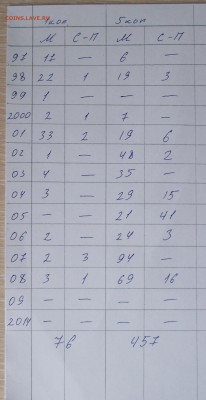 1 коп 5 коп
М С-П М С-П
97 17 — 6 —
98 22 1 19 3
99 1 — — —
2000 2 1 7 —
01 33 2 19 6
02 1 — 48 2
03 4 — 35 —
04 3 — 29 15
05 — — 21 41
06 2 — 24 3
07 2 3 94 —
08 3 1 69 16
09 — — — —
2014 — — — —
76 457